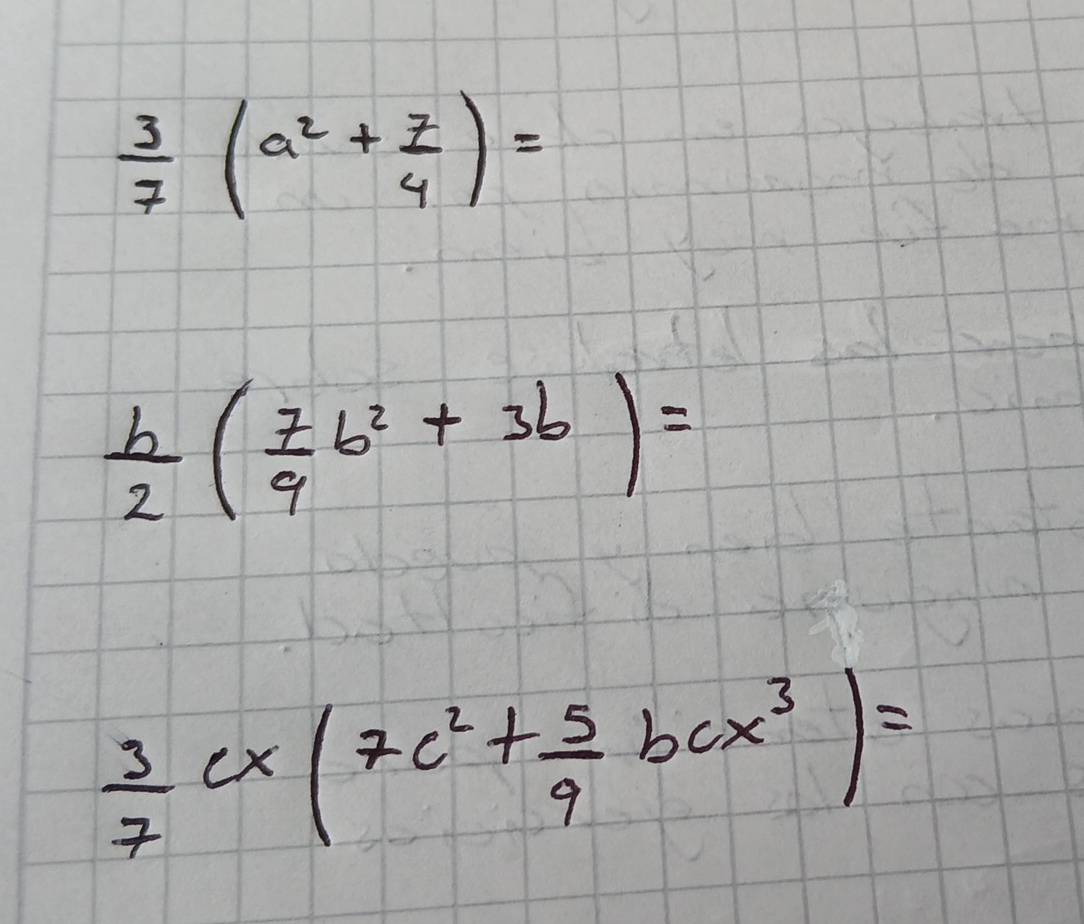 3/7 (a² + 7/4) =
b/2 (7/9 b² + 3b) =
3/7 cx (7c² + 5/9 bcx³) =